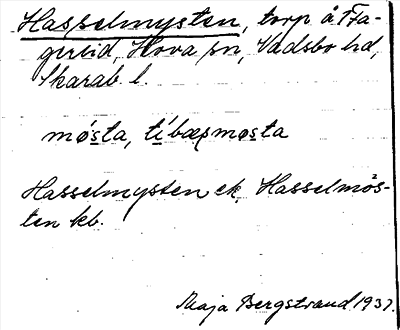 Hasselmysten, torp å Fa-
gerlid, Hova sn, Vadsbo hd,
Skarab. l.
mø̀sta, tíbæ mø̀sta
Hasselmysten ek, Hasselmös-
ten kb.
Maja Bergstrand 1937.